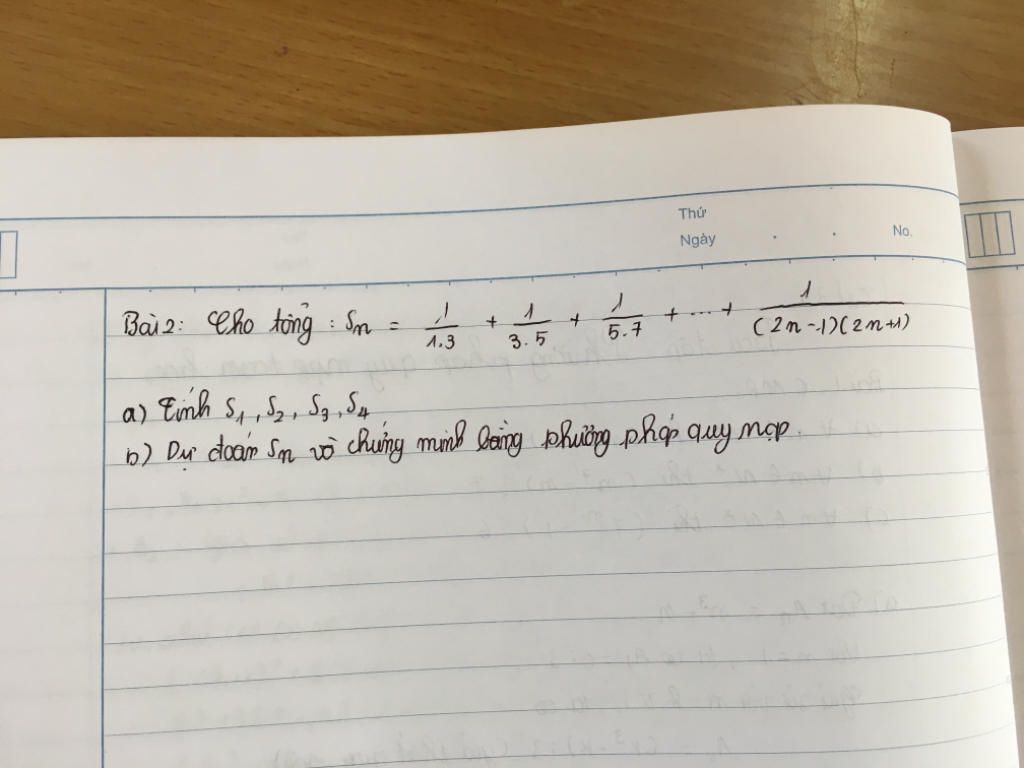 Thứ
Ngày . . No.
Bài 2: Cho tổng : Sn = 1/1.3 + 1/3.5 + 1/5.7 + ... + 1/(2n-1)(2n+1)
a) Tính S1, S2, S3, S4
b) Dự đoán Sn và chứng minh bằng phương pháp quy nạp.